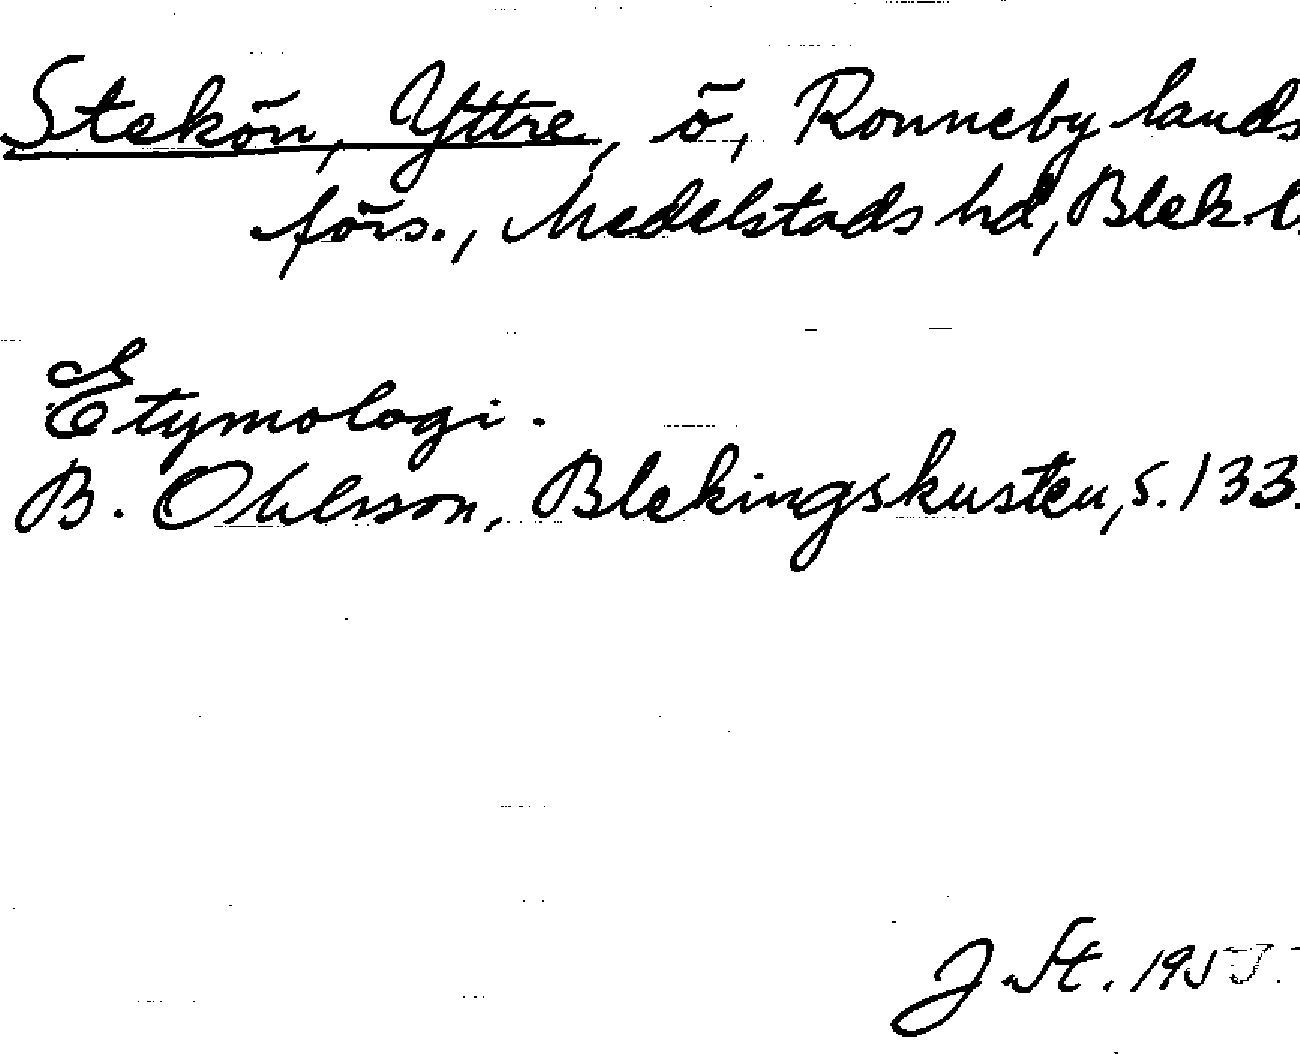 Stekön, Yttre, ö, Ronneby lands
förs., Medelstads hd, Blek. l.
Etymologi.
B. Ohlsson, Blekingskusten, s. 133.
J. St. 1955.